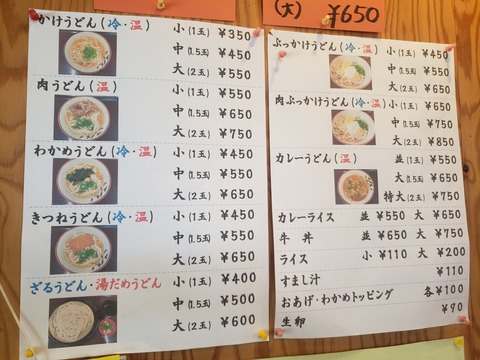 (大) ¥650
かけうどん(冷・温) 小(1玉) ¥350
中(1.5玉) ¥450
大(2玉) ¥550
肉うどん(温) 小(1玉) ¥550
中(1.5玉) ¥650
大(2玉) ¥750
わかめうどん(冷・温) 小(1玉) ¥450
中(1.5玉) ¥550
大(2玉) ¥650
きつねうどん(冷・温) 小(1玉) ¥450
中(1.5玉) ¥550
大(2玉) ¥650
ざるうどん・湯だめうどん 小(1玉) ¥400
中(1.5玉) ¥500
大(2玉) ¥600
ぶっかけうどん(冷・温) 小(1玉) ¥450
中(1.5玉) ¥550
大(2玉) ¥650
肉ぶっかけうどん(冷・温) 小(1玉) ¥650
中(1.5玉) ¥750
大(2玉) ¥850
カレーうどん(温) 並(1玉) ¥550
大(1.5玉) ¥650
特大(2玉) ¥750
カレーライス 並 ¥550 大 ¥650
牛丼 並 ¥650 大 ¥750
ライス 小 ¥110 大 ¥200
すまし汁 ¥110
おあげ・わかめトッピング 各¥100
生卵 ¥90